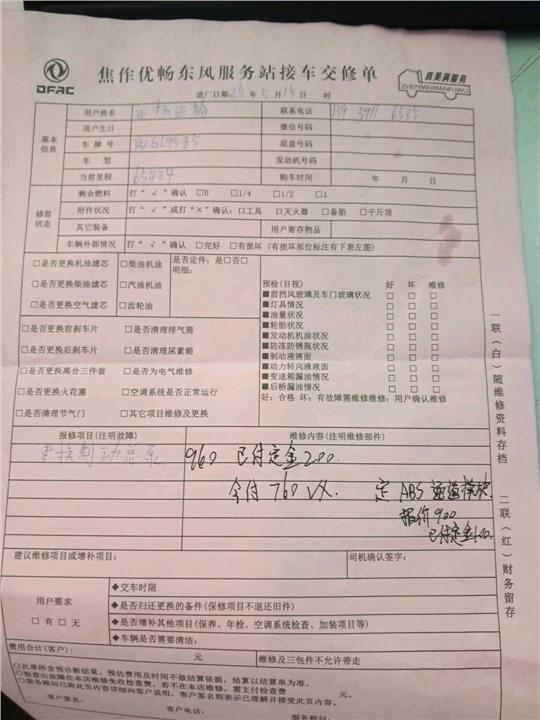 DFAC
焦作优畅东风服务站接车交修单
真美满服务
ZHENMEIMANFUWU
进厂日期 25 年 5 月 15 日 时
基本信息
用户姓名 运输 联系电话
用户生日 微信号码
车牌号 底盘号码
车型 发动机号码
当前里程 65424 购车时间 年 月 日
修前状态
剩余燃料 打“√”确认 □0 □1/4 □1/2 □1
附件状况 打“√”或打“×”确认：□工具 □灭火器 □备胎 □千斤顶
其它装备 用户寄存物品
车辆外部情况 打“√”确认 □完好 □有损坏（有损坏部位标注有下表左图）
□是否更换机油滤芯 □柴油机油
□是否更换柴油滤芯 □汽油机油
□是否更换空气滤芯 □齿轮油
是否定件：是□否□
明细：
□是否更换前刹车片 □是否清理排气筒
□是否更换后刹车片 □是否清理尿素箱
□是否更换离合三件套 □是否为电气维修
□是否更换火花塞 □空调系统是否正常运行
□是否清理节气门 □其它项目维修及更换
预检(目视) 好 坏 维修
■前挡风玻璃及车门玻璃状况 □ □ □
■灯具情况 □ □ □
■油量状况 □ □ □
■轮胎状况 □ □ □
■发动机机油状况 □ □ □
■防冻防锈瓶状况 □ □ □
■制动液液面 □ □ □
■动力转向液液面 □ □ □
■变速箱漏油情况 □ □ □
■后桥漏油情况 □ □ □
好：合格 坏：有故障需维修维修：用户确认维修
报修项目(注明故障) 维修内容(注明维修部件)
更换制动总泵 960 已付定金200.
今付760 定ABS 模块.
报价900
已付定金100.
建议维修项目或增补项目： 司机确认签字：
用户要求
□有 □无
◆交车时限
◆是否归还更换的备件(保修项目不退还旧件)
◆是否增补其他项目(保养、年检、空调系统检查、加装项目等)
◆车辆是否需要清洁：
费用合计(客户)： 元 维修及三包件不允许带走
○此单所含预诊断结果，预估费用及时间不做结算依据，结算以结算单为准。
○检查出故障在本店维修免收检查费，若不在本店维修，需支付检查费 元。
○服务顾问已将此页内容详细向客户说明，客户签名则表示已理解并接受此页内容。
客户签名： 客户电话： 服务顾问：
一联（白）随维修资料存档 二联（红）财务留存